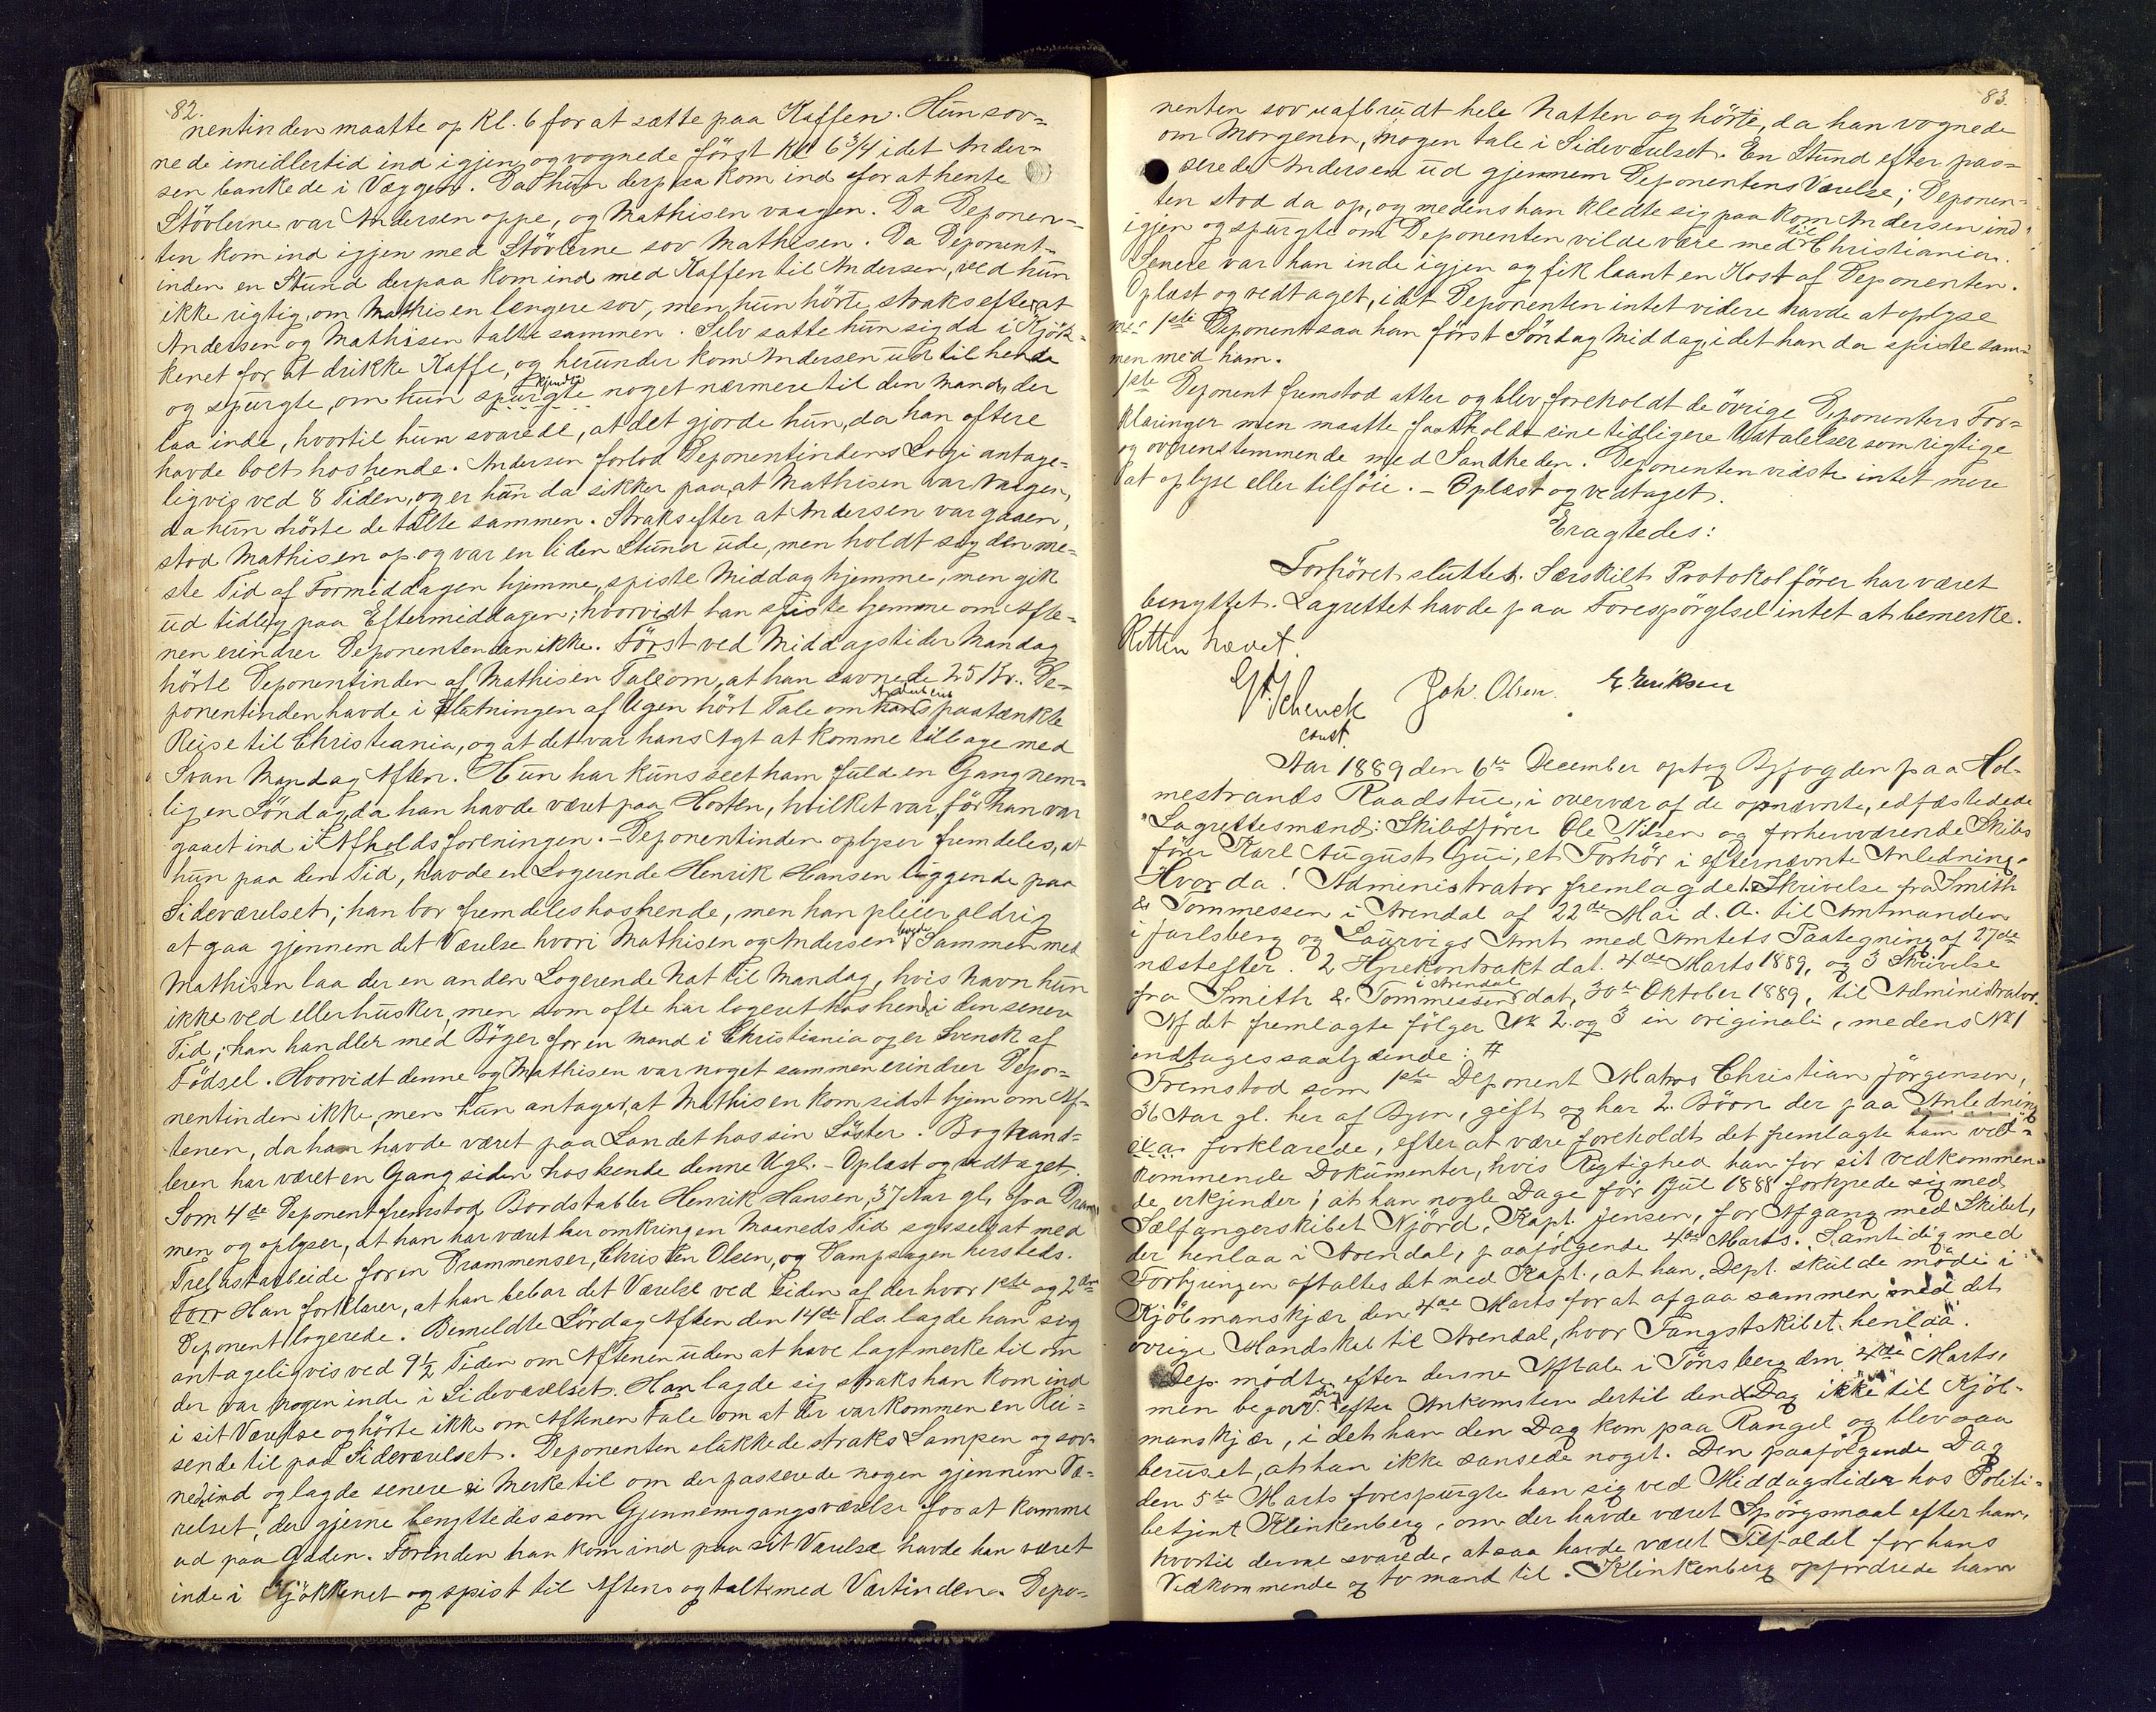 82.
nentinden maatte op Kl. 6 for at sætte paa Kaffen. Hun sov-
nede imidlertid ind igjen og vognede först Kl 6 3/4 idet Ander-
sen bankede i Væggen. Da hun derpaa kom ind for at hente
Stövlerne var Andersen oppe, og Mathisen vaagen. Da Deponen-
ten kom ind igjen med Stövlerne sov Mathisen. Da Deponent-
inden en Stund derpaa kom ind med Kaffen til Andersen, ved hun
ikke rigtig, om Mathisen længere sov, men hun hörte straks efter, at
Andersen og Mathisen talte sammen. Selv satte hun sig da i Kjök-
kenet for at drikke Kaffe, og herunder kom Andersen ud til hende
og spurgte, om hun spurgte kjendte noget nærmere til den Mand, der
laa inde, hvortil hun svarede, at det gjorde hun, da han oftere
havde boet hos hende. Andersen forlod Deponentindens Logi antage-
ligvis ved 8 Tiden, og er hun da sikker paa, at Mathisen var vaagen,
da hun hörte de talte sammen. Straks efter at Andersen var gaaen,
stod Mathisen op og var en liden Stund ude, men holdt sig den me-
ste Tid af Formiddagen hjemme, spiste Middag hjemme, men gik
ud tidlig paa Eftermiddagen; hvorvidt han spiste hjemme om Afte-
nen erindrer Deponentinden ikke. Först ved Middagstider Mandag
hörte Deponentinden af Mathisen Tale om, at han savnede 25 Kr. De-
ponentinden havde i Slutningen af Ugen hört Tale om hans Andersens paatænkte
Reise til Christiania, og at det var hans Agt at komme tilbage med
Svan Mandag Aften. Hun har kuns seet ham fuld en Gang nem-
lig en Söndag, da han havde været paa Horten, hvilket var för han var
gaaet ind i Afholdsforeningen. - Deponentinden oplyser fremdeles, at
hun paa den Tid, havde en Logerende Henrik Hansen liggende paa
Sideværelset; han bor fremdeles hos hende, men han pleier aldrig
at gaa gjennem det Værelse hvori Mathisen og Andersen laa. Sammen med
Mathisen laa der en anden Logerende Nat til Mandag, hvis Navn hun
ikke ved eller husker, men som ofte har logeret hos hende i den senere
Tid; han handler med Böger for en Mand i Christiania og er Svensk af
Födsel. Hvorvidt denne og Mathisen var noget sammen erindrer Depo-
nentinden ikke, men hun antager, at Mathisen kom sidst hjem om Af-
tenen, da han havde været paa Landet hos sin Söster. Boghand-
leren har været en Gang siden hos hende denne Uge. - Oplæst og vedtaget.
Som 4de Deponent fremstod Bordstabler Henrik Hansen, 37 Aar gl. fra Dram
men og oplyser, at han har været her omkring en Maaneds Tid sysselsat med
Trelastarbeide for en Drammenser, Christen Olsen, og Dampsagen hersteds.
Han forklarer, at han bebor det Værelse ved Siden af der hvor 1ste og 2den
Deponent logerede. Bemeldte Lördag Aften den 14de ds. lagde han sig
antageligvis ved 9 1/2 Tiden om Aftenen uden at have lagt merke til om
der var nogen inde i Sideværelset. Han lagde sig straks han kom ind
i sit Værelse og hörte ikke om Aftenen Tale om at der var kommen en Rei-
sende til paa Sideværelset. Deponenten slukkede straks Lampen og sov-
nede ind og lagde senere ei Merke til om der passerede nogen gjennem Væ-
relset, der gjerne benyttedes som Gjennemgangsværelse for at komme
ud paa Gaden. Forenden han kom ind paa sit Værelse havde han været
inde i Kjökkenet og spist til Aftens og talt med Værtinden. Depo-
83.
nenten sov uafbrudt hele Natten og hörte, da han vognede
om Morgenen, nogen tale i Sideværelset. En Stund efter pas-
serede Andersen ud gjennem Deponentens Værelse; Deponen-
ten stod da op, og medens han kledte sig paa kom Andersen ind
igjen og spurgte om Deponenten vilde være med til Christiania.
Senere var han inde igjen og fik laant en Kost af Deponenten.
Oplæst og vedtaget, idet Deponenten intet videre havde at oplyse
1ste Deponent saa han först Söndag Middag, idet han da spiste sam-
men med ham.
1ste Deponent fremstod atter og blev foreholdt de övrige Deponenters For-
klaringer men maatte fastholde sine tidligere Udtalelser som rigtige
og overenstemmende med Sandheden. Deponenten vidste intet mere
at oplyse eller tilföie. - Oplæst og vedtaget.
Eragtedes:
Forhöret sluttet. Særskilt Protokolförer har været
benyttet. Lagrettet havde paa Forespörgsel intet at bemerke.
Retten hævet.
G. Schenck Joh. Olsen. E. Eriksen
const.
Aar 1889 den 6te December optog Byfogden paa Hol-
mestrands Raadstue, i overvær af de opnævnte, edfæstedede
Lagrettesmænd: Skibsförer Ole Nilsen og forhenværende Skibs
förer Karl August Gui, et Forhör i efternævnte Anledning.
Hvorda: Administrator fremlagde 1. Skrivelse fra Smith
& Tommessen i Arendal af 22de Mai d. A. til Amtmanden
i Jarlsberg og Laurvigs Amt med Amtets Paategning af 27de
næstefter. 2 Hyrekontrakt dat. 4de Marts 1889, og 3 Skrivelse
fra Smith & Tommessen i Arendal dat. 30te Oktober 1889, til Administrator.
Af det fremlagte fölger No 2. og 3 in originali, medens No 1
indtages saalydende: #
Fremstod som 1ste Deponent Matros Christian Jörgensen,
36 Aar gl. her af Byen, gift og har 2 Börn der paa Anledning
forklarede, efter at være foreholdt det fremlagte ham ved-
kommende Dokumenter, hvis Rigtighed han for sit vedkommen-
de erkjender; at han nogle Dage för Jul 1888 forhyrede sig med
Sælfangerskibet Njörd, Kapt. Jensen, for Afgang med Skibet,
der henlaa i Arendal, paafölgende 4de Marts. Samtidig med
Forhyringen aftaltes det med Kapt., at han, Dept. skulde möde i
Kjöbmanskjær den 4de Marts for at afgaa sammen med det
övrige Mandskab til Arendal, hvor Fangstskibet henlaa.
Dep. mödte efter denne Aftale i Tönsberg den 4de Marts,
men begav sig efter Ankomsten dertil den Dag ikke til Kjöb-
manskjær, idet han den Dag kom paa Rangel og blev saa
beruset, at han ikke sansede noget. Den paafölgende Dag
den 5te Marts forespurgte han sig ved Middagstider hos Politi-
betjent Klinkenberg, om der havde været Spörgsmaal efter ham,
hvortil denne svarede, at saa havde været Tilfældet for hans
Vedkommende og to mand til. Klinkenberg opfordrede ham